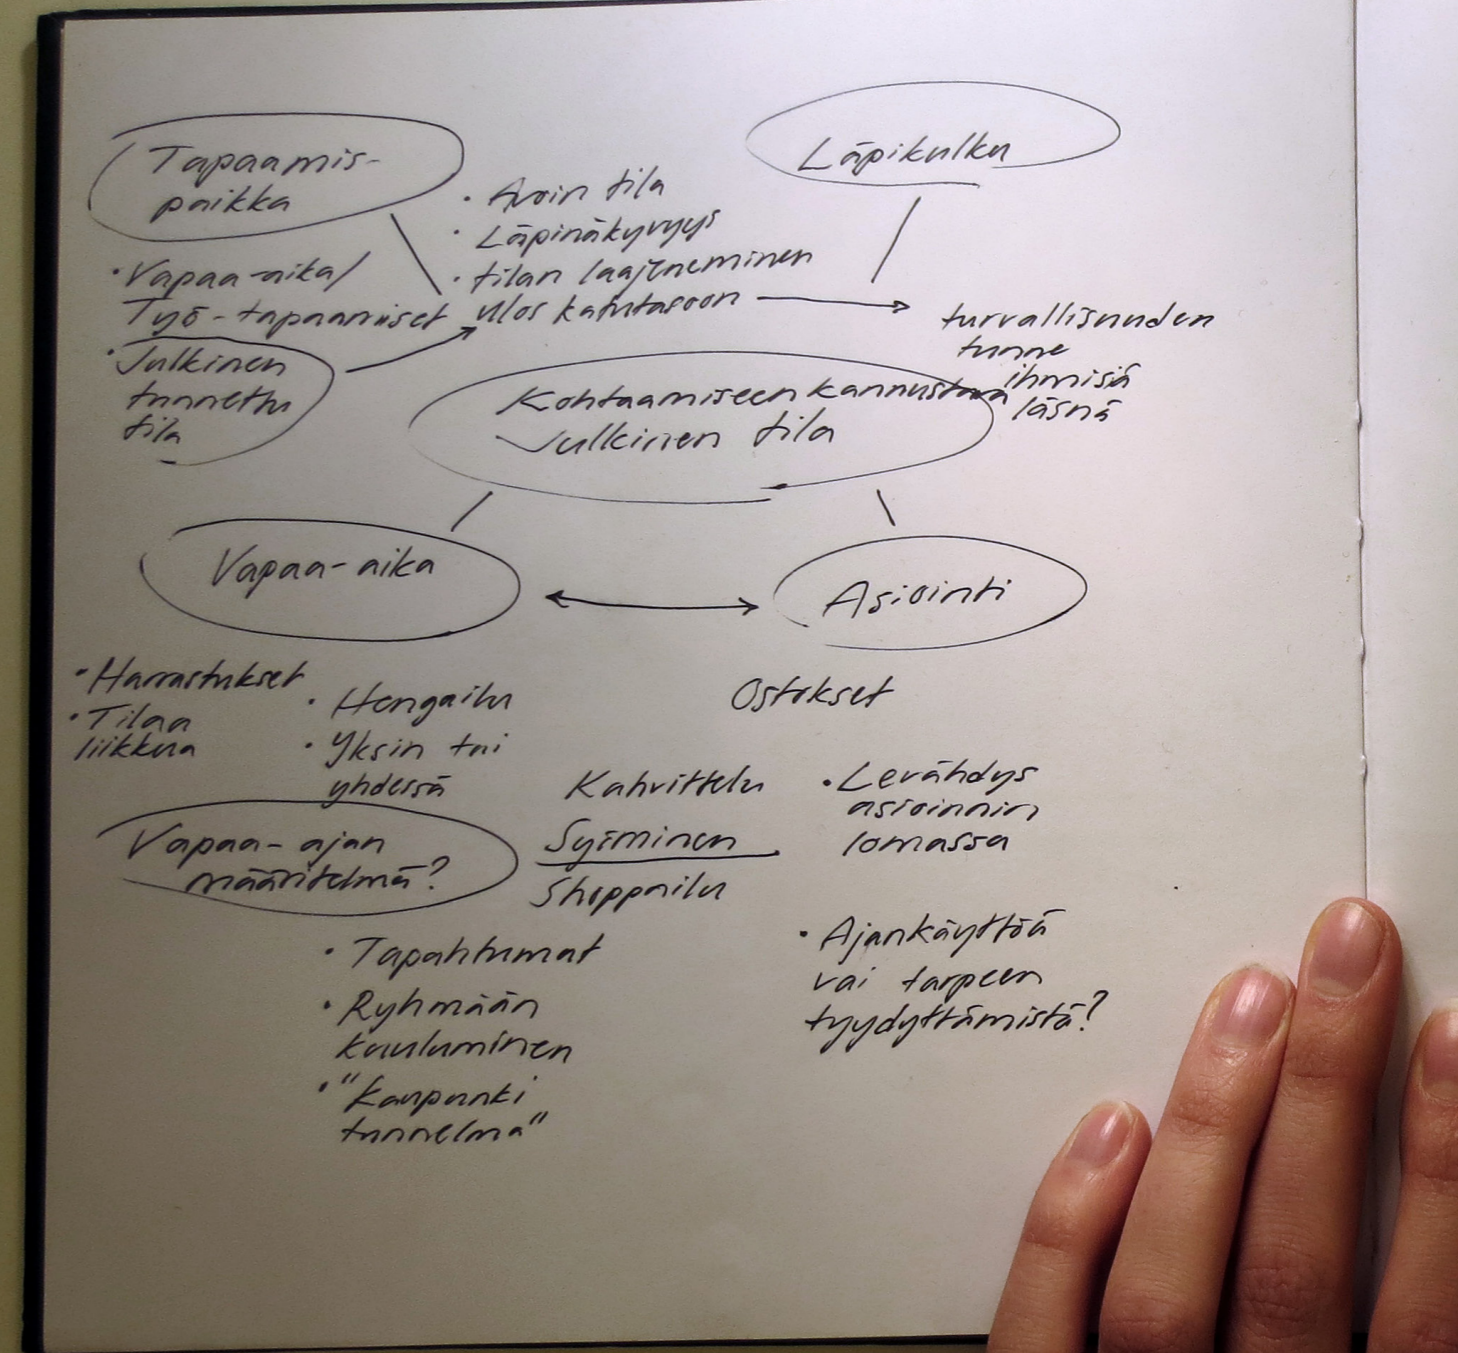 Tapaamis-
paikka
Läpikulku
• Avoin tila
• Läpinäkyvyys
• tilan laajeneminen
ulos katutasoon
• Vapaa-aika/
Työ-tapaamiset
• Julkinen
tunnettu
tila
turvallisuuden
tunne
ihmisiä
läsnä
Kohtaamiseen kannustava
Julkinen tila
Vapaa-aika
Asiointi
• Harrastukset
• Tilaa
liikkua
• Hengailu
• Yksin tai
yhdessä
Ostokset
Kahvittelu
Syöminen
Shoppailu
• Levähdys
asioinnin
lomassa
Vapaa-ajan
määritelmä?
• Tapahtumat
• Ryhmään
kuuluminen
• "Kaupunki
tunnelma"
• Ajankäyttöä
vai tarpeen
tyydyttämistä?